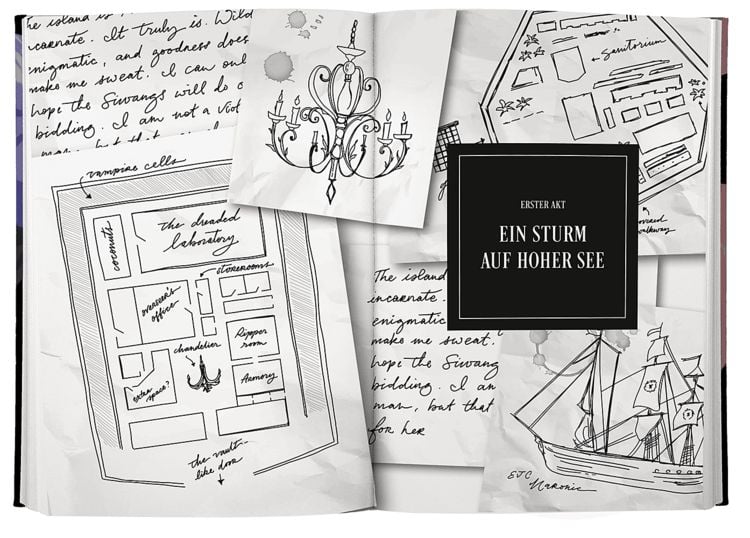 the island is
incarnate. It truly is. Wild
enigmatic, and goodness does
make me sweat. I can onl
hope the Siwangs will do
bidding. I am not a
man, but that
vampire cells
coconuts
the dreaded
laboratory
storerooms
overseer's
office
Ripper
room
chandelier
extra
space?
Armory
the vault-
like door
Sanitorium
covered
walkway
ERSTER AKT
EIN STURM
AUF HOHER SEE
The island
incarnate.
enigmatic
make me sweat.
hope the Siwang
bidding. I am
man, but that
for her
EJC
Naronic